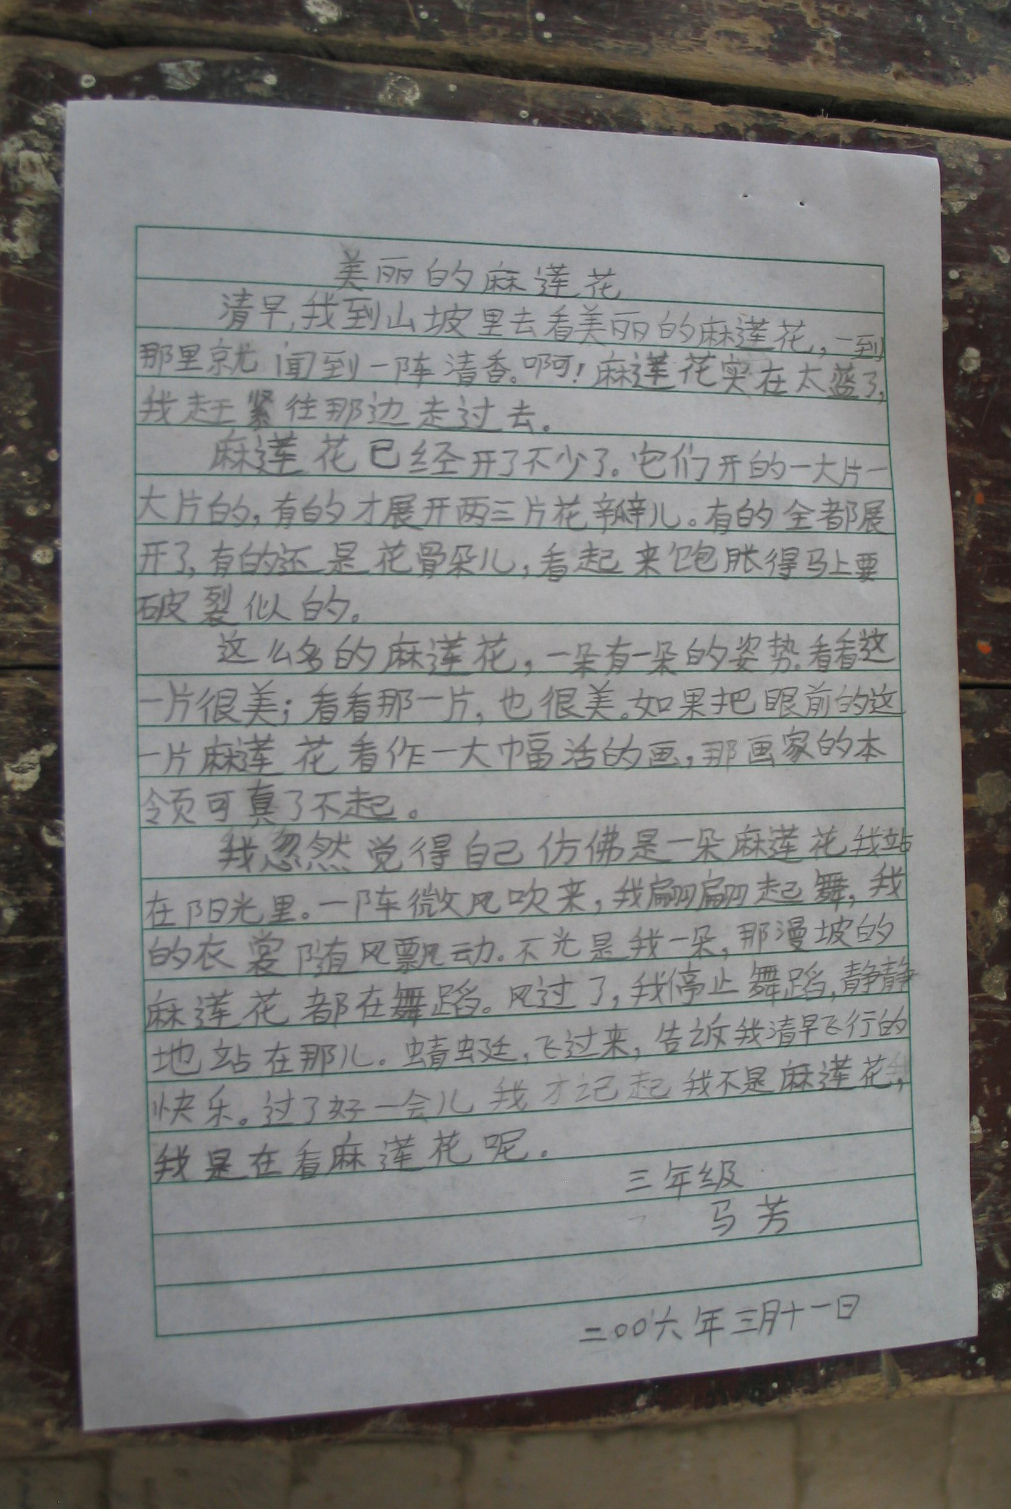 美丽的麻莲花
清早,我到山坡里去看美丽的麻莲花,一到
那里就闻到一阵清香。啊!麻莲花实在太蓝了,
我赶紧往那边走过去。
麻莲花已经开了不少了。它们开的一大片一
大片的,有的才展开两三片花瓣儿。有的全都展
开了,有的还是花骨朵儿,看起来饱胀得马上要
破裂似的。
这么多的麻莲花,一朵有一朵的姿势。看看这
一片很美;看看那一片,也很美。如果把眼前的这
一片麻莲花看作一大幅活的画,那画家的本
领可真了不起。
我忽然觉得自己仿佛是一朵麻莲花我站
在阳光里。一阵微风吹来,我翩翩起舞,我
的衣裳随风飘动。不光是我一朵,那漫坡的
麻莲花都在舞蹈。风过了,我停止舞蹈,静静
地站在那儿。蜻蜓,飞过来,告诉我清早飞行的
快乐。过了好一会儿我才记起我不是麻莲花,
我是在看麻莲花呢。
三年级
马芳
二00六年三月十一日